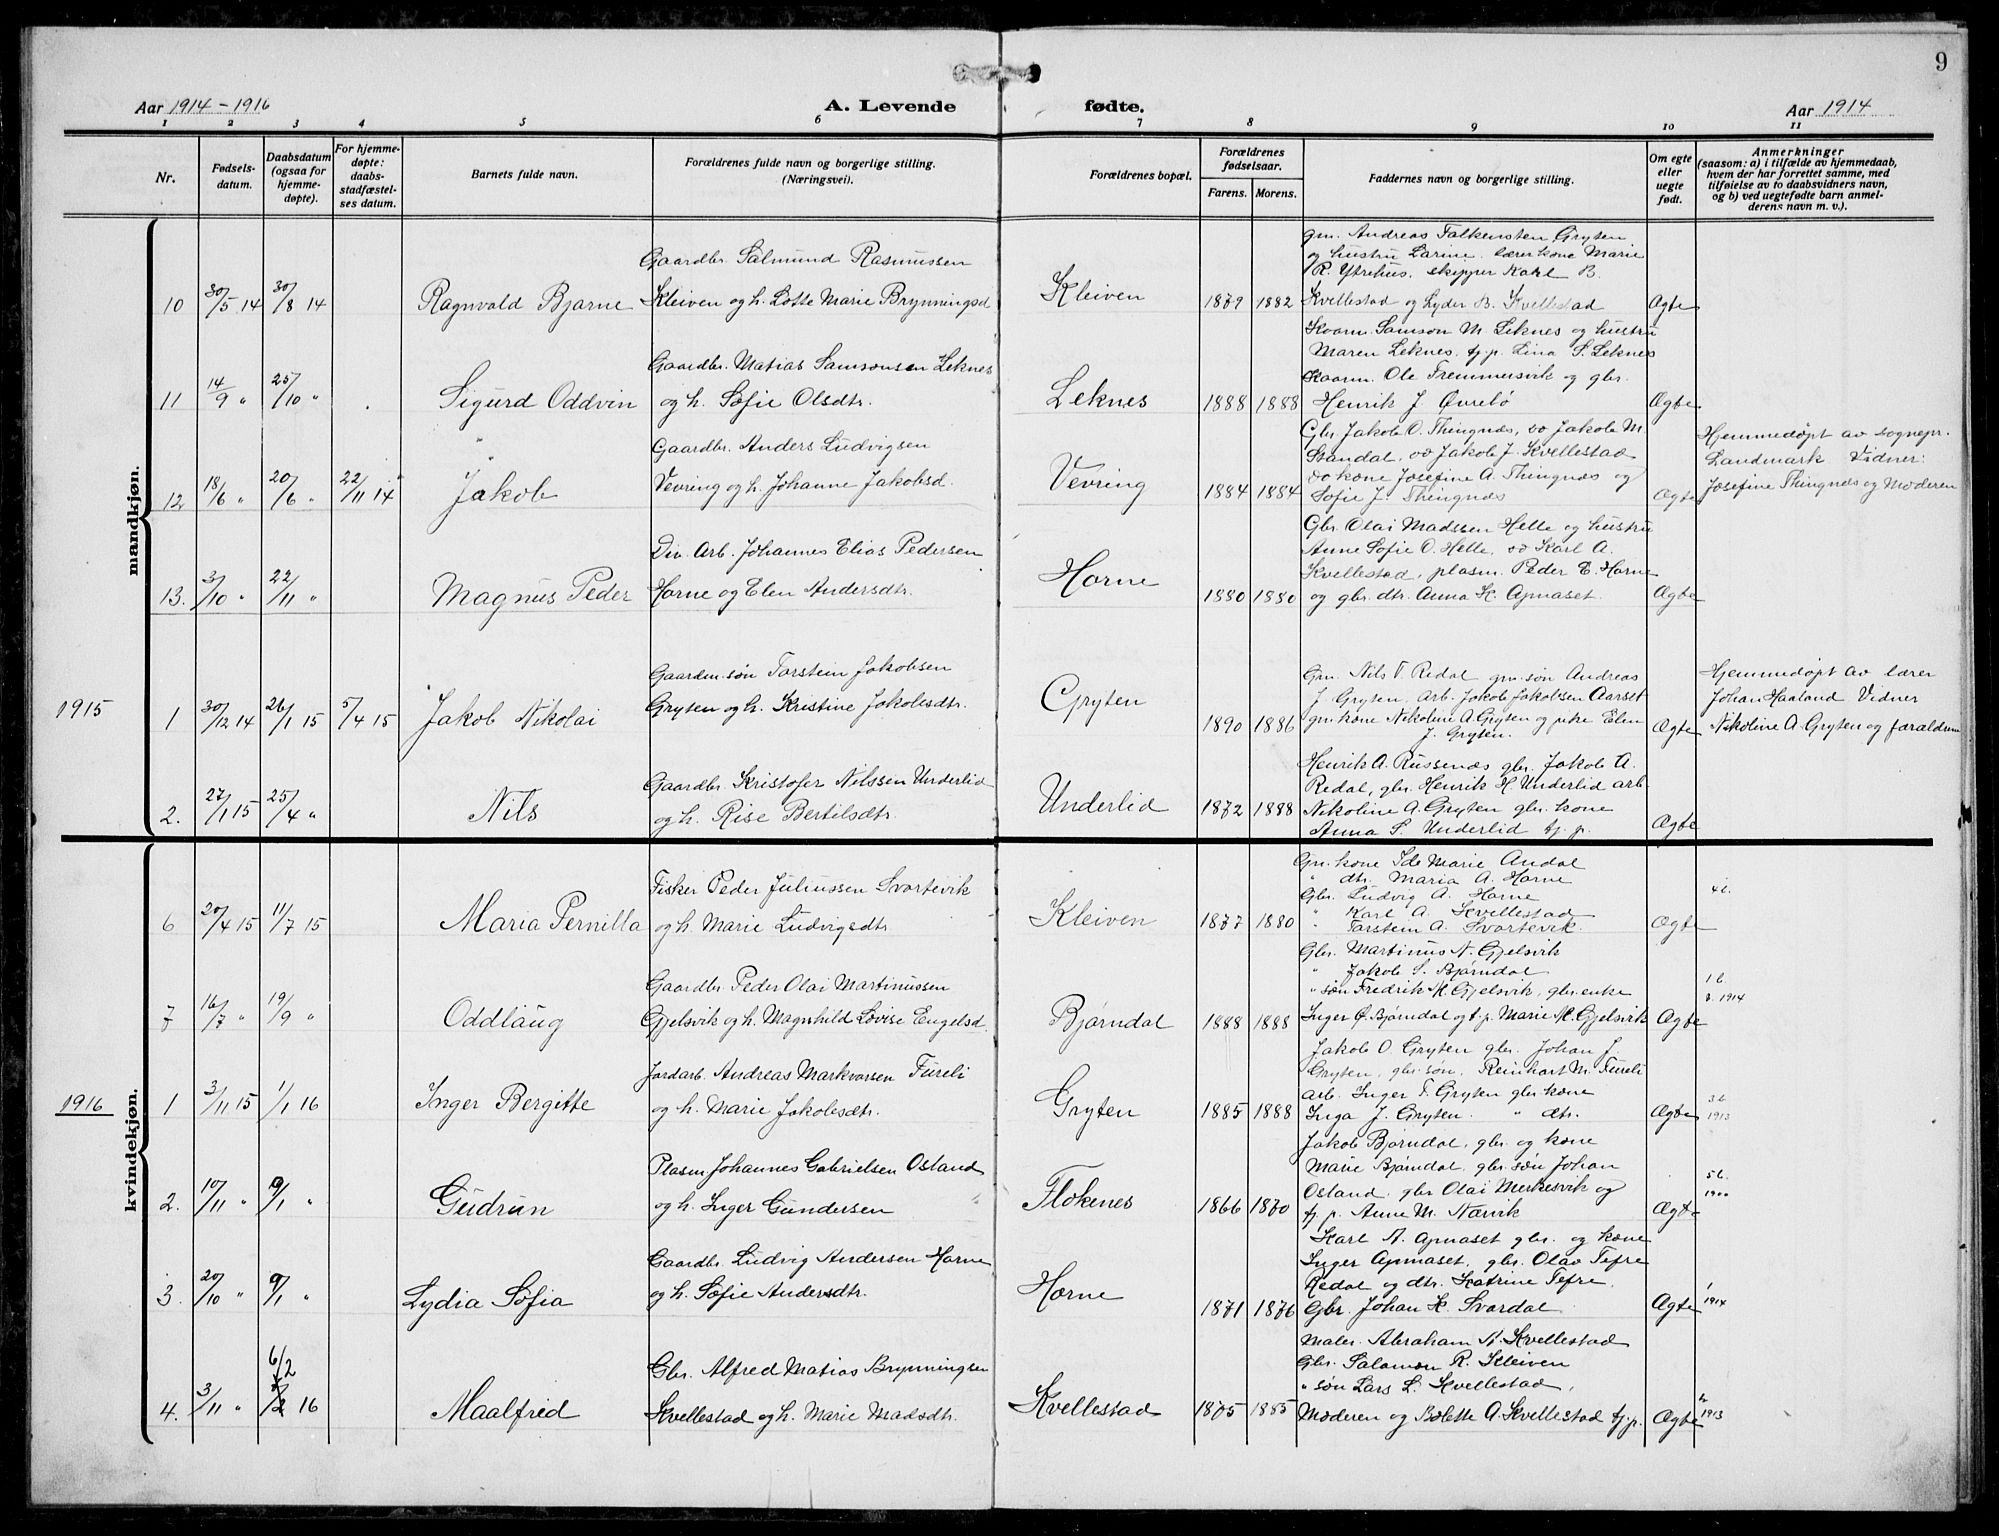 9
Aar 1914 - 1916
A. Levende
fødte.
Aar 1914
1 2 3 4 5 6 7 8 9 10 11
Nr.
Fødsels-
datum.
Daabsdatum
(ogsaa for
hjemme-
døpte).
For hjemme-
døpte:
daabs-
stadfæstel-
ses datum.
Barnets fulde navn.
Forældrenes fulde navn og borgerlige stilling.
(Næringsvei).
Forældrenes bopæl.
Forældrenes
fødselsaar.
Farens. Morens.
Faddernes navn og borgerlige stilling.
Om egte
eller
uegte
født.
Anmerkninger
(saasom: a) i tilfælde av hjemmedaab,
hvem der har forrettet samme, med
tilføielse av to daabsvidners navn,
og b) ved uegtefødte barn anmel-
derens navn m. v.).
mandkjøn.
10 30/5 14 30/8 14 Ragnvald Bjarne
Gaardbr. Salmund Rasmussen
Kleiven og h. Lotte Marie Brynningsd
Kleiven
1879 1882
gm. Andreas Falkensten Gryten
og hustru Larine. lærerkone Marie
R. Ytrehus, skipper Karl B.
Kvellestad og Lyder B. Kvellestad
Ægte
11 14/9 " 25/10 " Sigurd Oddvin
Gaardbr. Matias Samsonsen Leknes
og h. Sofie Olsdtr.
Leknes
1888 1888
Kaarm. Samson M. Leknes og hustru
Maren Leknes. tj.p. Lina S. Leknes
Kaarm. Ole Tremmersvik og gbr.
Henrik J. Øvrebø
Ægte
12 18/6 20/6 " 22/11 14 Jakob
Gaardbr. Anders Ludvigsen
Vevring og h. Johanne Jakobsd.
Vevring
1884 1884
Gbr. Jakob O. Thingnæs, do Jakob M.
Standal, do Jakob J. Kvellestad
do kone Josefine A. Thingnæs og
Sofie J. Thingnæs
Ægte
Hjemmedøpt av sognepr.
Landmark Vidner:
Josefine Thingnæs og Moderen
13. 3/10 " 22/11 " Magnus Peder
Div. Arb. Johannes Elias Pedersen
Horne og Elen Andersdtr.
Horne
1880 1880
Gbr. Olai Madssen Helle og hustru
Anne Sofie O. Helle, do Karl A.
Kvellestad, plasm. Peder E. Horne
og gbr. dtr. Anna K. Apnaset.
Ægte
1915
1 30/12 14 26/1 15 5/4 15 Jakob Nikolai
Gaardm. søn Torstein Jakobsen
Gryten og h. Kristine Jakobsdtr.
Gryten
1890 1886
Gm. Nils T. Redal gm. søn Andreas
J. Gryten, arb. Jakob Jakobsen Aarset
gm. kone Nikoline A. Gryten og pike Elen
J. Gryten.
Ægte
Hjemmedøpt av lærer
Johan Haaland Vidner
Nikoline A. Gryten og forældrene
2. 27/1 15 25/4 " Nils
Gaardbr. Kristofer Nilssen Underlid
og h. Rise Bertilsdtr.
Underlid
1872 1888
Henrik A. Russenæs gbr. Jakob A.
Redal, gbr. Henrik H. Underlid arb.
Nikoline A. Gryten gbr. kone
Anna S. Underlid tj. p.
Ægte
kvindekjøn.
6 20/4 15 11/7 15 Maria Pernilla
Fisker Peder Juliussen Svortevik
og h. Marie Ludvigsdtr.
Kleiven
1877 1880
Gm. kone Ide Marie Andal
" dtr. Maria A. Horne
Gbr. Ludvig A. Horne
" Karl A. Kvellestad
" Torstein A. Svortevik.
Ægte
4 b.
7 16/7 " 19/9 " Oddlaug
Gaardbr. Peder Olai Martinussen
Gjelsvik og h. Magnhild Lovise Engelsd.
Bjørndal
1888 1888
Gbr. Martinus N. Gjelsvik
" Jakob S. Bjørndal
" søn Fredrik M. Gjelsvik, gbr. enke
Inger Ø. Bjørndal og t. p. Marie M. Gjelsvik
Ægte
1 b.
1914
1916
1 3/11 15 1/1 16 Inger Bergitte
Jordarb. Andreas Markvorsen Fureli
og h. Marie Jakobsdtr.
Gryten
1885 1888
Jakob O. Gryten gbr. Johan J.
Gryten, gbr. søn, Reinhart M. Fureli
arb. Inger T. Gryten gbr. kone
Inga J. Gryten. " dtr.
Ægte
3 b.
1913
2. 10/11 " 9/1 " Gudrun
Plasm. Johannes Gabrielsen Osland
og h. Inger Gundersen
Flokenes
1866 1870
Jakob Bjørndal, gbr. og kone
Marie Bjørndal, gbr. søn Johan
Osland, gbr. Olai Merkesvik og
tj. p. Anne M. Narvik
Ægte
5 b.
1900
3. 20/10 " 9/1 " Lydia Sofia
Gaardbr. Ludvig Andersen Horne
og h. Sofie Andersdtr.
Horne
1871 1876
Karl A. Apnaset gbr. og kone
Inger Apnaset, gbr. Olav Tefre
Redal og dtr. Katrine Tefre.
Gbr. Johan K. Svardal
Ægte
1914
4. 3/11 " 6/2 16 Maalfred
Gbr. Alfred Matias Brynningsen
Kvellestad og h. Marie Madsdtr.
Kvellestad
1875 1885
Maler. Abraham A. Kvellestad
Gbr. Salomon R. Kleiven
" søn Lars L. Kvellestad,
Moderen og Bolette A. Kvellestad tj.p.
Ægte
1913